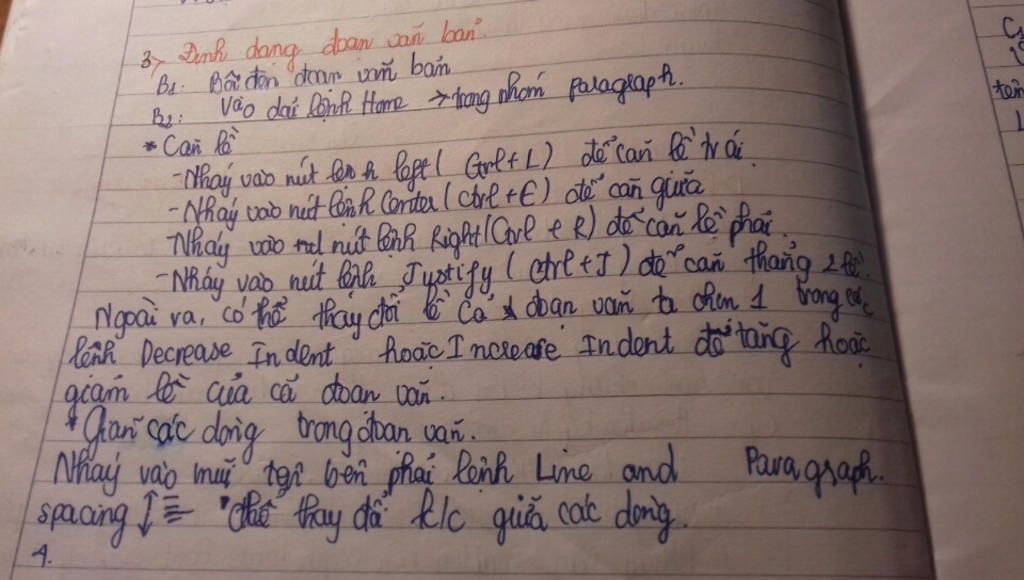 3, Định dạng đoạn văn bản.
B1: Bôi đen đoạn văn bản
B2: Vào dải lệnh Home → trong nhóm paragraph.
* Căn lề
- Nháy vào nút lệnh left ( Ctrl + L ) để căn lề trái.
- Nháy vào nút lệnh Center ( Ctrl + E ) để căn giữa
- Nháy vào nút lệnh Right ( Ctrl + R ) để căn lề phải.
- Nháy vào nút lệnh Justify ( Ctrl + J ) để căn thẳng 2 lề.
Ngoài ra, có thể thay đổi lề cả đoạn văn ta chọn 1 trong các
lệnh Decrease Indent hoặc Increase Indent để tăng hoặc
giảm lề của cả đoạn văn.
* Giãn các dòng trong đoạn văn.
Nháy vào mũi tên bên phải lệnh Line and Paragraph.
spacing ↕≡ thay đổi k/c giữa các dòng.
4.